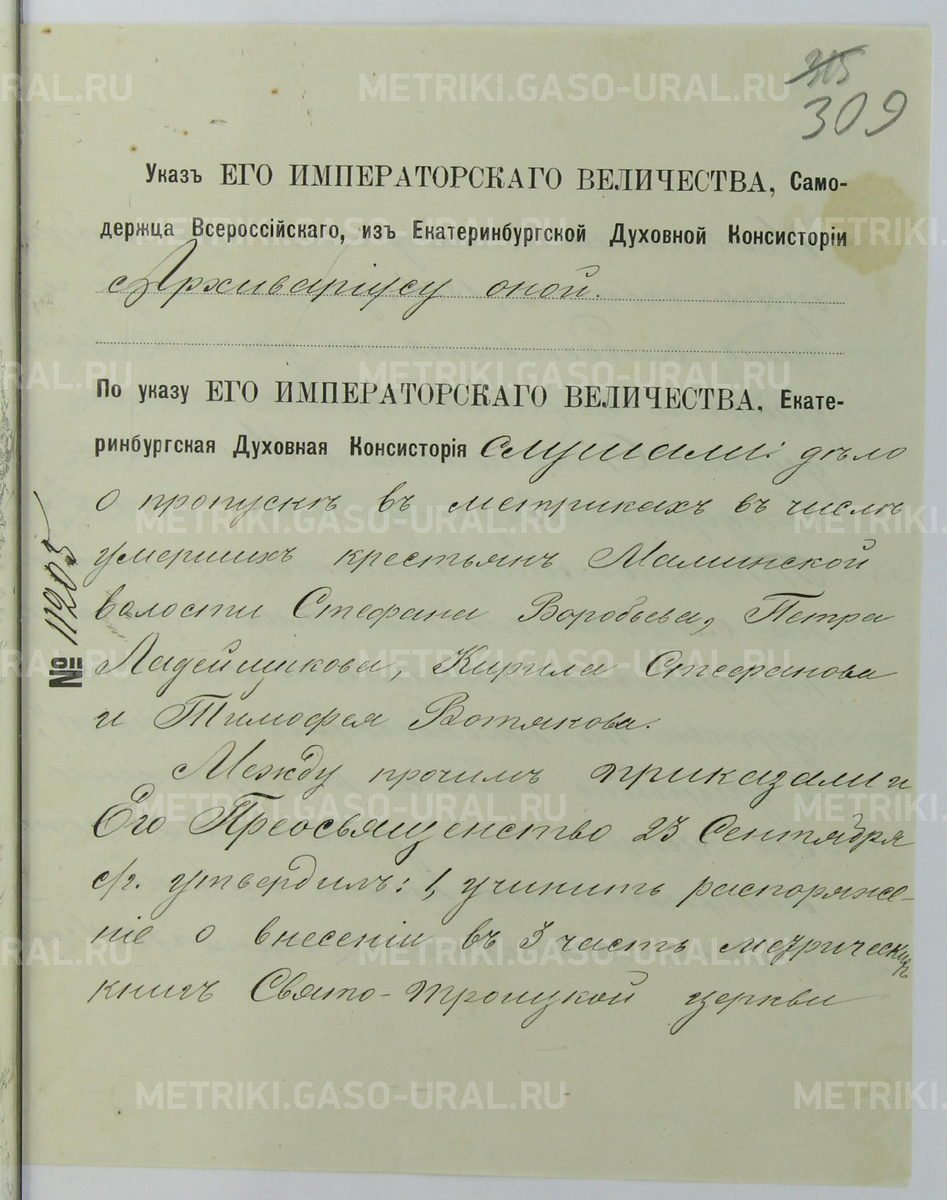 315
309
Указъ ЕГО ИМПЕРАТОРСКАГО ВЕЛИЧЕСТВА, Само-
держца Всероссійскаго, изъ Екатеринбургской Духовной Консисторіи
Архиваріусу оной.
По указу ЕГО ИМПЕРАТОРСКАГО ВЕЛИЧЕСТВА, Екате-
ринбургская Духовная Консисторія слушали: дѣло
о пропускѣ въ метрикахъ въ числѣ
умершихъ крестьянъ Маминской
волости Стефана Воробьева, Петра
Ладейщикова, Кирила Стефанова
и Тимофея Вотякова.
Между прочимъ приказали и
Его Преосвященство 23 Сентября
с/г. утвердилъ: 1, учинить распоряже-
ніе о внесеніи въ 3 часть метрическихъ
книгъ Свято-Троицкой церкви
№ 11205
METRIKI.GASO-URAL.RU